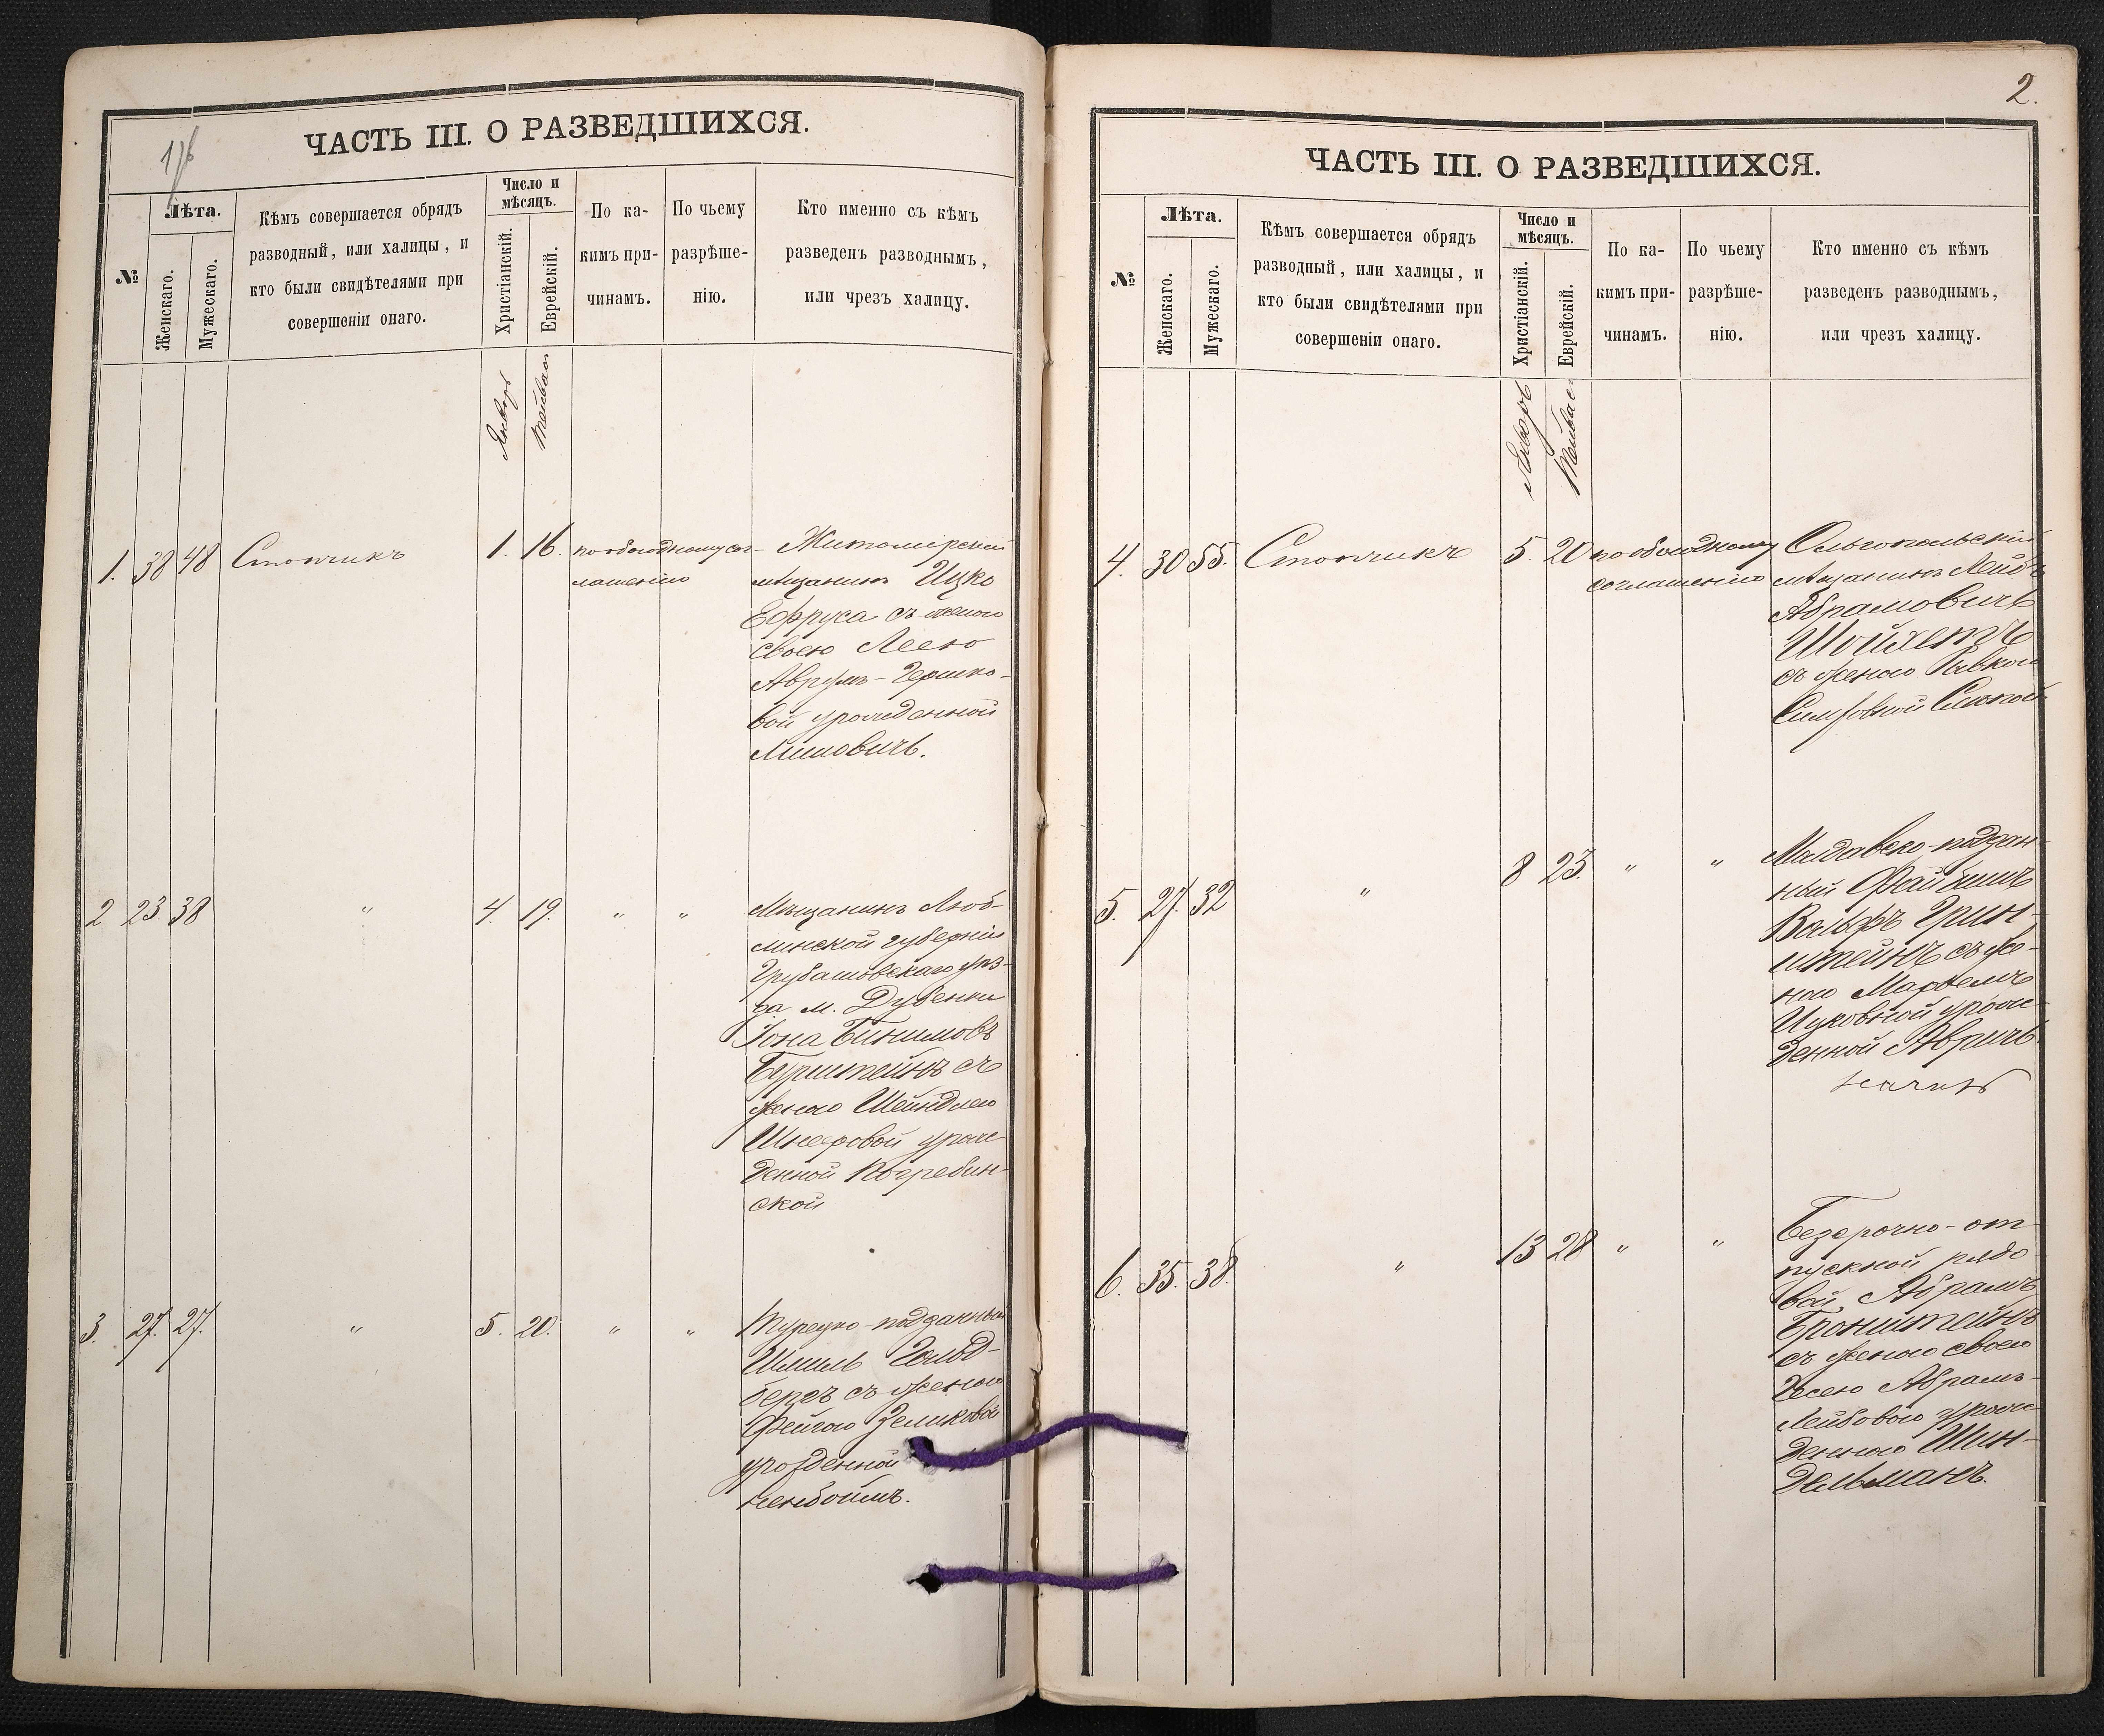 1/6
ЧАСТЬ III. О РАЗВЕДШИХСЯ.
№
Лѣта.
Женскаго.
Мужескаго.
Кѣмъ совершается обрядъ
разводный, или халицы, и
кто были свидѣтелями при
совершеніи онаго.
Число и
мѣсяцъ.
Христіанскій.
Еврейскій.
По ка-
кимъ при-
чинамъ.
По чьему
разрѣше-
нію.
Кто именно съ кѣмъ
разведенъ разводнымъ,
или чрезъ халицу.
Январь
Тейвас
1. 38 48 Столчикъ 1. 16. по обоюдному сог-
лашенію
Житомірскій
мѣщанинъ Ицко
Ефруса съ женою
своею Леею
Аврумъ-Гершко-
вой урожденной
Лимовичъ.
2 23. 38 " 4. 19. " "
Мѣщанинъ Люб-
линской губерніи
Грубашовскаго уѣз-
да м. Дубенки
Іона Бинимовъ
Бурштейнъ съ
женою Шейндлею
Шнееровой урож-
денной Погребин-
ской
3. 27. 27. " 5. 20. " "
Турецко-подданный
Шмиль Гольд-
бергъ съ женою
Фейгою Зельковой
урожденной
ненбоймъ.
2.
ЧАСТЬ III. О РАЗВЕДШИХСЯ.
№
Лѣта.
Женскаго.
Мужескаго.
Кѣмъ совершается обрядъ
разводный, или халицы, и
кто были свидѣтелями при
совершеніи онаго.
Число и
мѣсяцъ.
Христіанскій.
Еврейскій.
По ка-
кимъ при-
чинамъ.
По чьему
разрѣше-
нію.
Кто именно съ кѣмъ
разведенъ разводнымъ,
или чрезъ халицу.
Январь
Тейвас
4. 30 55. Столчикъ 5. 20 по обоюдному
соглашенію
Ольгопольскій
мѣщанинъ Лейбъ
Абрамовичъ
Шойхетъ
съ женою Ривкою
5. 27. 32 " 8 23. " "
Молдавско-поддан-
ный Файбишъ
Вольфъ Грин-
штейнъ съ же-
ною
Ицковной урож-
денной
6. 35. 38. " 13 28 " "
Безсрочно-от-
пускной рядо
вой, Абрамъ
Бронштейнъ
съ женою своею
Гесею Абрамъ-
Лейбовою урож
денною Шин-
дельманъ.